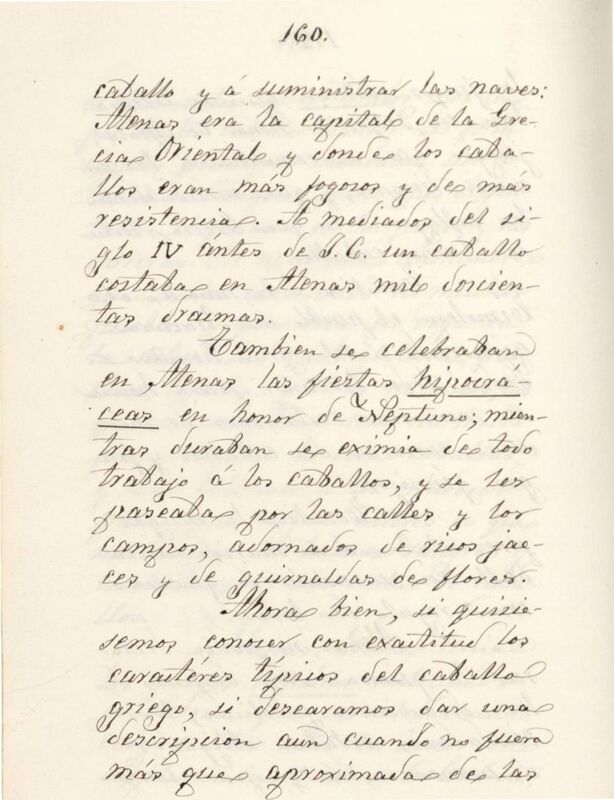 160.
caballo y á suministrar las naves:
Atenas era la capital de la Gre-
cia Oriental y donde los caba-
llos eran más fogosos y de más
resistencia. A mediados del si-
glo IV ántes de J.C. un caballo
costaba en Atenas mil doscien-
tas dracmas.
Tambien se celebraban
en Atenas las fiestas hipocrá-
ceas en honor de Neptuno; mien-
tras duraban se eximia de todo
trabajo á los caballos, y se les
paseaba por las calles y los
campos, adornados de ricos jae-
ces y de guirnaldas de flores.
Ahora bien, si quisie-
semos conocer con exactitud los
caractéres típicos del caballo
griego, si desearamos dar una
descripcion aun cuando no fuera
más que aproximada de las